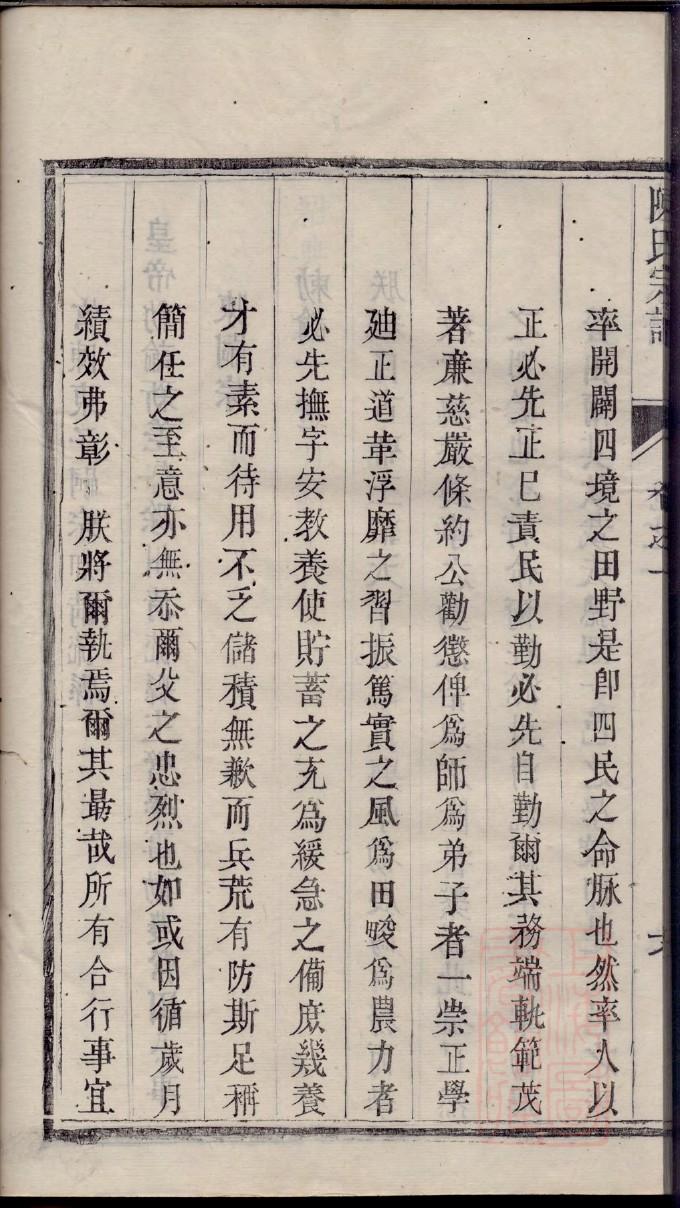 陳氏宗譜
卷之一
六
率開闢四境之田野是卽四民之命脉也然率人以
正必先正已責民以勤必先自勤爾其務端軌範茂
著亷慈嚴條約公勸懲俾爲師爲弟子者一崇正學
廸正道革浮靡之習振篤實之風爲田畯爲農力者
必先撫字安教養使貯蓄之充爲緩急之備庶幾養
才有素而待用不乏儲積無歉而兵荒有防斯足稱
簡任之至意亦無忝爾父之忠烈也如或因循歲月
績效弗彰 朕將爾執焉爾其最哉所有合行事宜